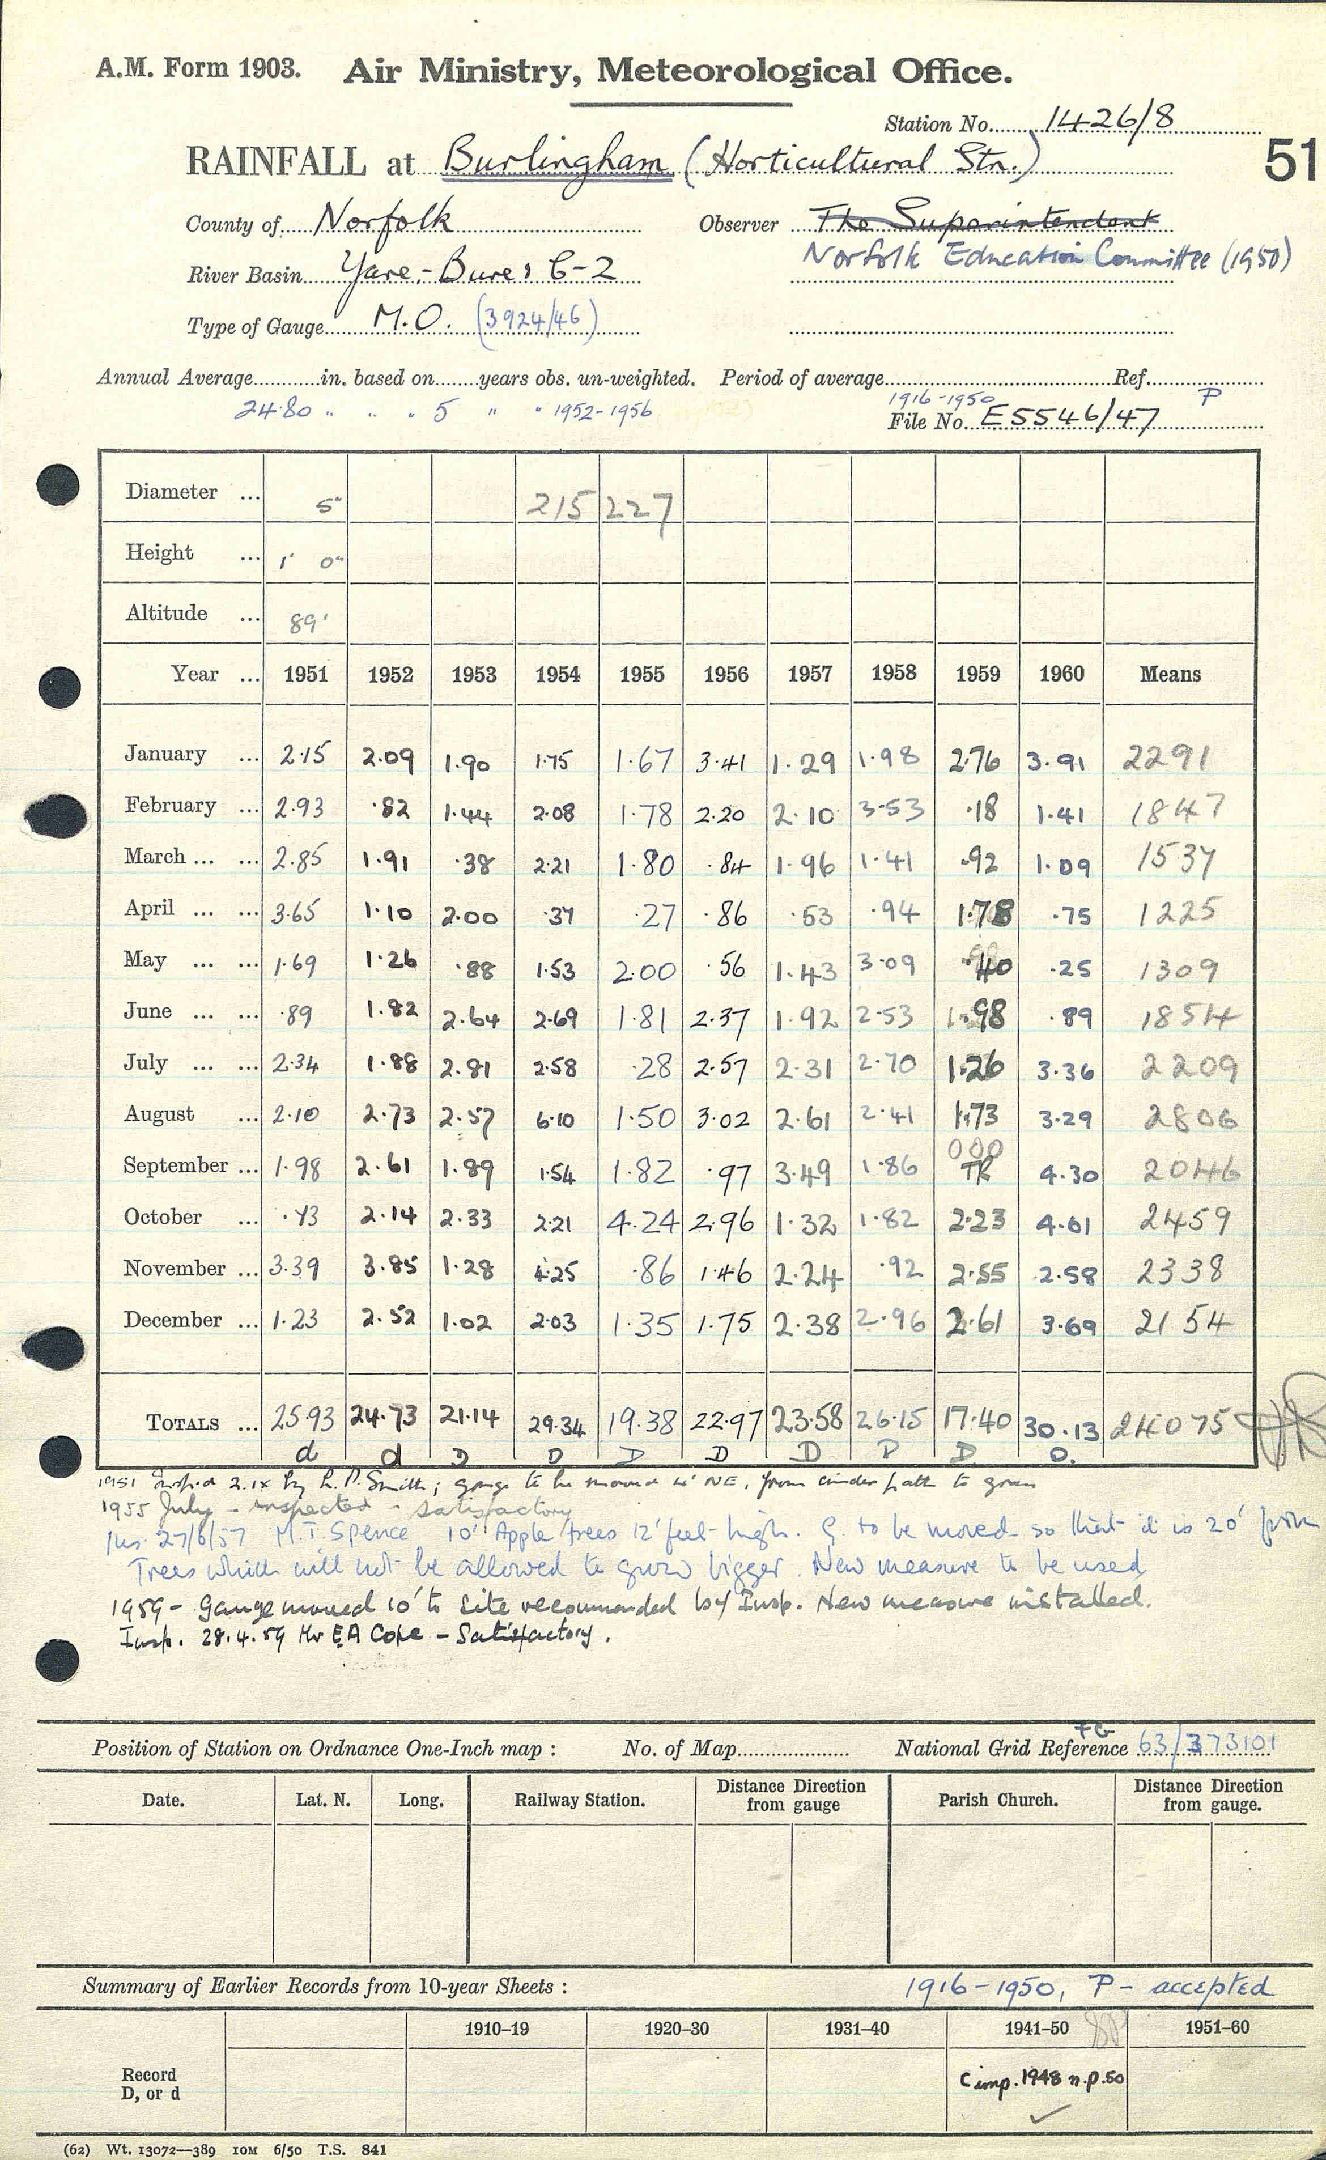 A.M. Form 1903. Air Ministry, Meteorological Office.
Station No. 1426/8
RAINFALL at Burlingham (Horticultural Stn.) 51
County of Norfolk Observer The Superintendent
Norfolk Education Committee (1950)
River Basin Yare - Bure : 6-2
Type of Gauge M.O. (3924/46)
Annual Average in. based on years obs. un-weighted. Period of average Ref.
24.80 " " " 5 " " 1952-1956 1916-1950 P
File No. E5546/47
Diameter ... 5" 215 227
Height ... 1' 0"
Altitude ... 89'
Year ... 1951 1952 1953 1954 1955 1956 1957 1958 1959 1960 Means
January ... 2.15 2.09 1.90 1.75 1.67 3.41 1.29 1.98 2.76 3.91 2291
February ... 2.93 .82 1.44 2.08 1.78 2.20 2.10 3.53 .18 1.41 1847
March ... ... 2.85 1.91 .38 2.21 1.80 .84 1.96 1.41 .92 1.09 1537
April ... ... 3.65 1.10 2.00 .37 .27 .86 .53 .94 1.78 .75 1225
May ... ... 1.69 1.26 .88 1.53 2.00 .56 1.43 3.09 .40 .25 1309
June ... ... .89 1.82 2.64 2.69 1.81 2.37 1.92 2.53 .98 .89 1854
July ... ... 2.34 1.88 2.81 2.58 .28 2.57 2.31 2.70 1.26 3.36 2209
August ... 2.10 2.73 2.57 6.10 1.50 3.02 2.61 2.41 1.73 3.29 2806
September ... 1.98 2.61 1.89 1.54 1.82 .97 3.49 1.86 000 TR 4.30 2046
October ... .73 2.14 2.33 2.21 4.24 2.96 1.32 1.82 2.23 4.61 2459
November ... 3.39 3.85 1.28 4.25 .86 1.46 2.24 .92 2.55 2.58 2338
December ... 1.23 2.52 1.02 2.03 1.35 1.75 2.38 2.96 2.61 3.69 2154
TOTALS ... 25.93 24.73 21.14 29.34 19.38 22.97 23.58 26.15 17.40 30.13 24075
d d D D D D D D D D.
1951 Insp'd 2.ix by L.P. Smith; gauge to be moved 12' NE, from cinder path to grass
1955 July - inspected - satisfactory
Ins. 27/6/57 M.T. Spence 10" Apple trees 12' feet high. G. to be moved so that it is 20' from
Trees which will not be allowed to grow bigger. New measure to be used
1959 - gauge moved 10' to site recommended by Insp. New measure installed.
Insp. 28.4.59 Mr E A Cope - Satisfactory.
Position of Station on Ordnance One-Inch map : No. of Map National Grid Reference TG 63/373101
Date. Lat. N. Long. Railway Station. Distance from gauge Direction Parish Church. Distance from gauge. Direction
Summary of Earlier Records from 10-year Sheets : 1916-1950, P - accepted
1910-19 1920-30 1931-40 1941-50 1951-60
Record D, or d Comp. 1948 n.p.50
(62) Wt. 13072—389 10M 6/50 T.S. 841